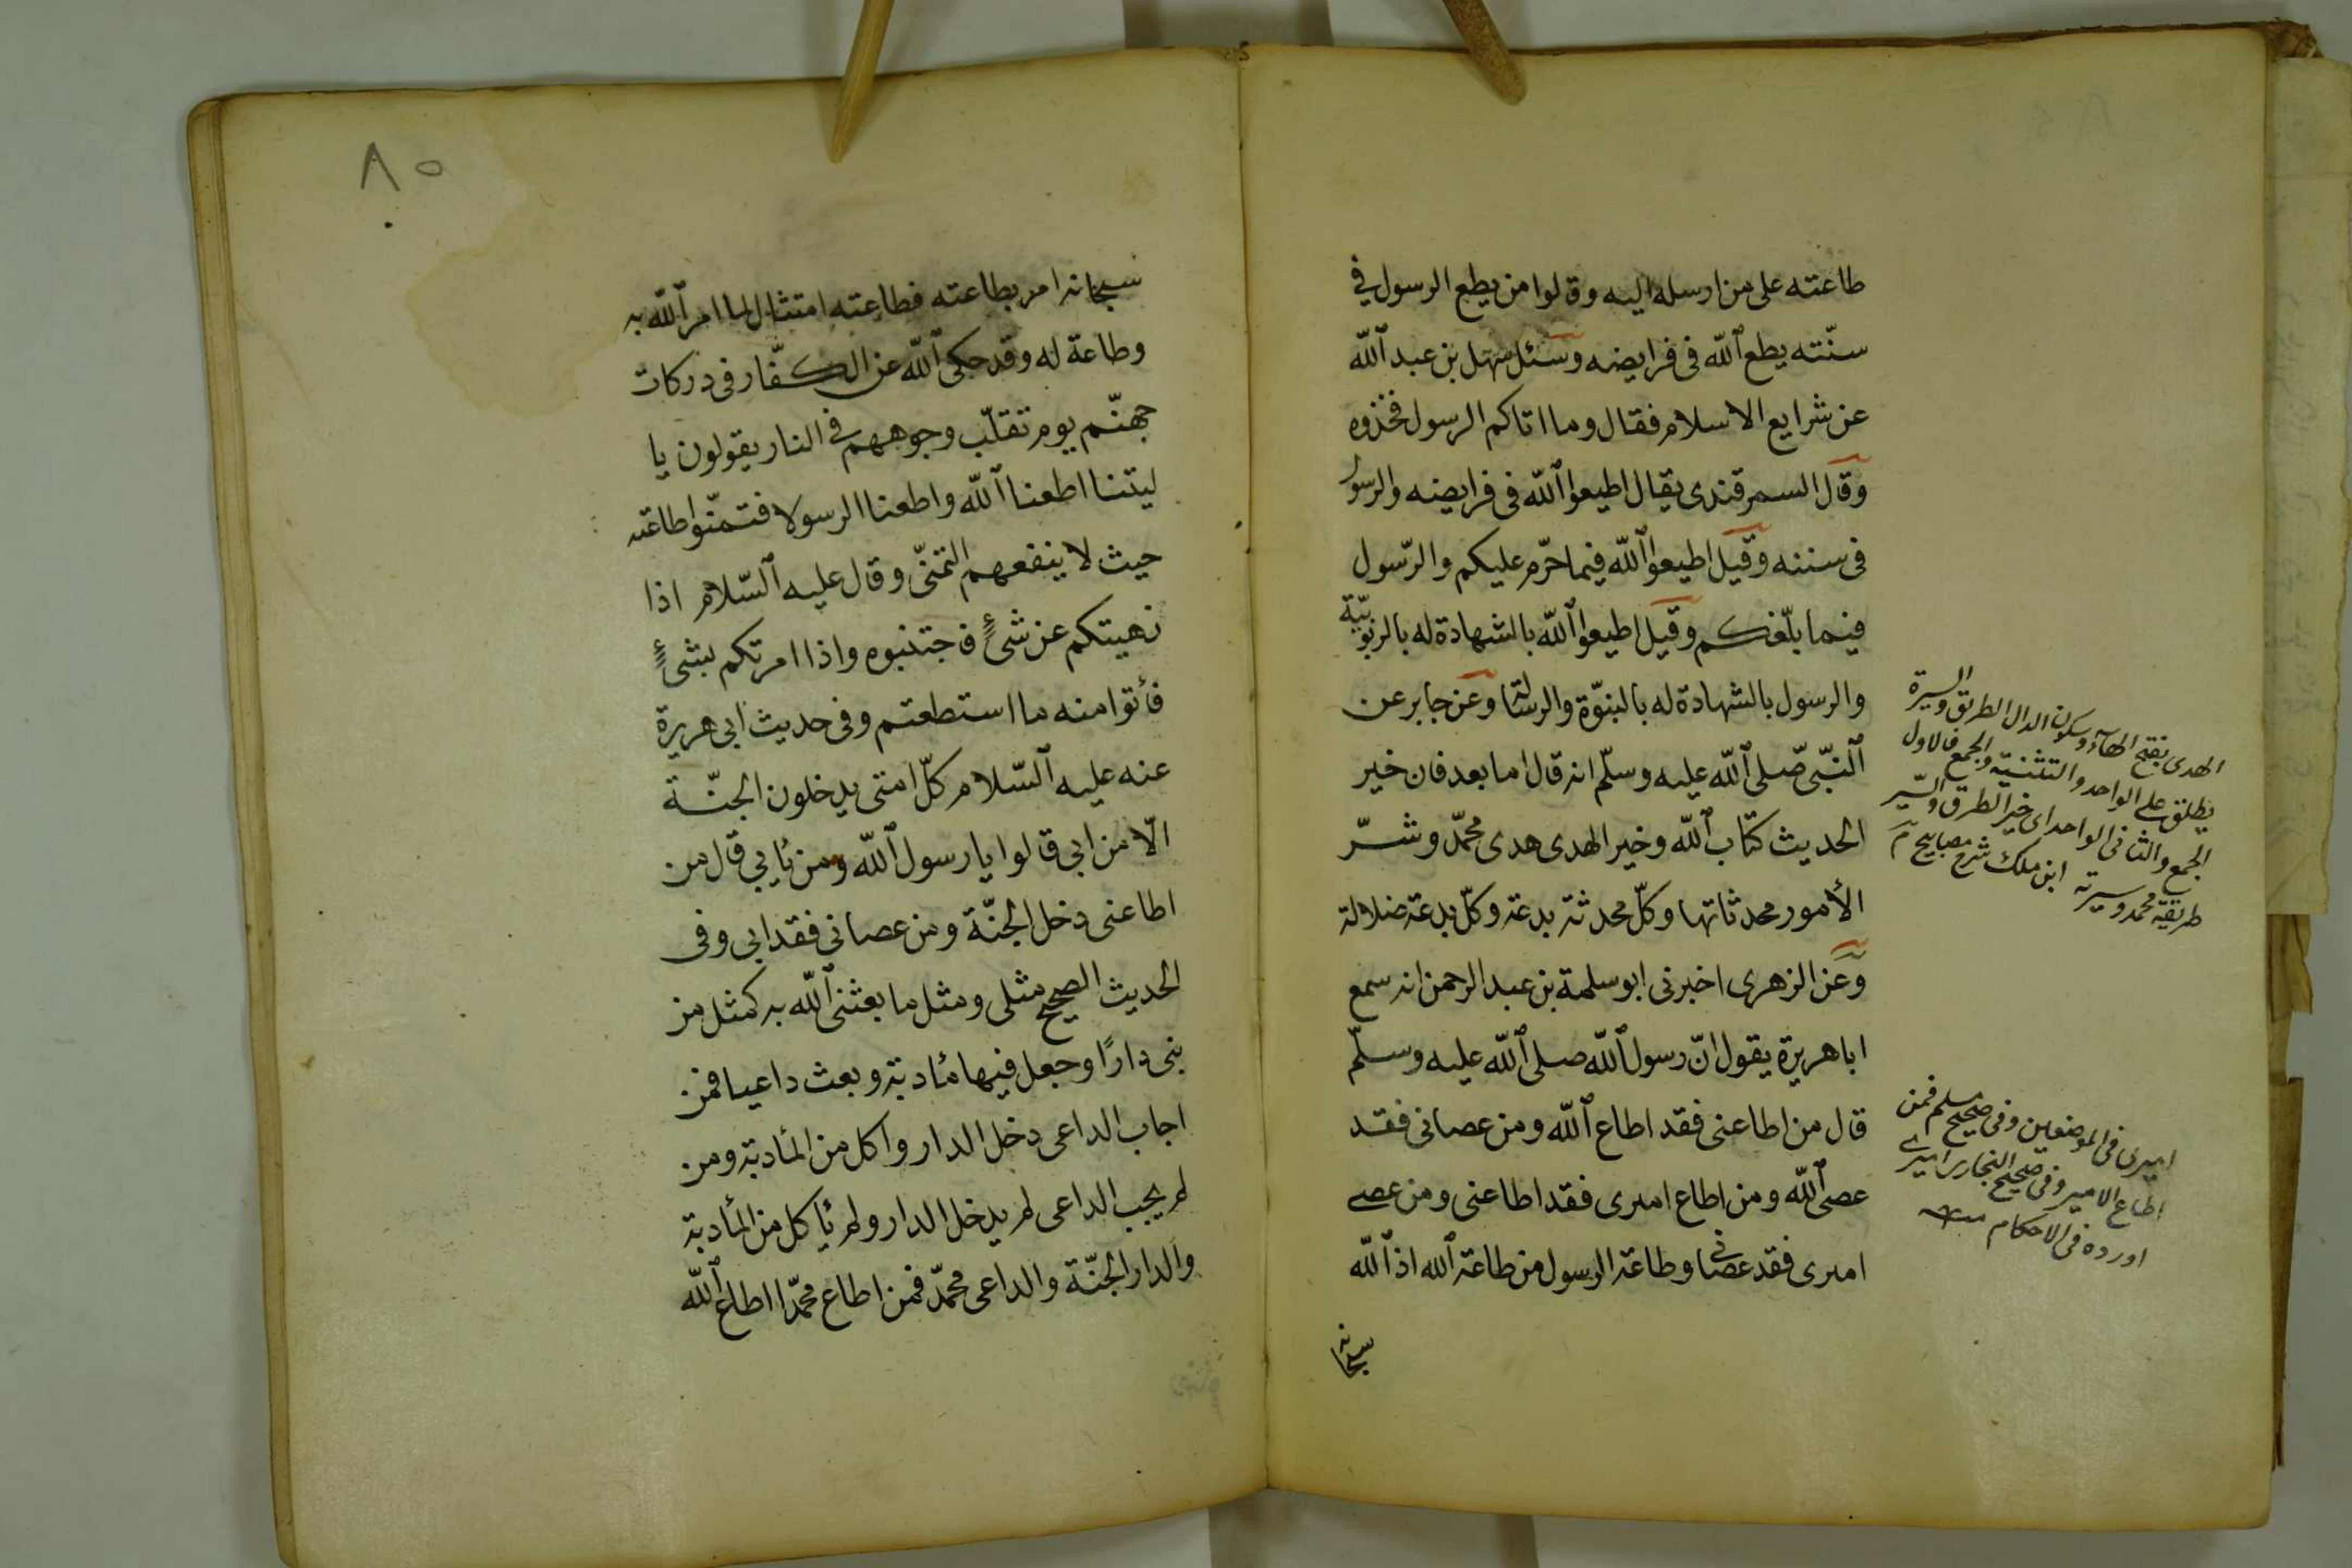 طاعته على من ارسله اليه وقالوا من يطع الرسول في
سنّته يطع الله في فرايضه وسئل سهل بن عبد الله
عن شرايع الاسلام فقال وما اتاكم الرسول فخذوه
وقال السمرقندى يقال اطيعوا الله فى فرايضه والرسول
فى سننه وقيل اطيعوا الله فيما حرّم عليكم والرّسول
فيما بلّغكم وقيل اطيعوا الله بالشهادة له بالربوبيّة
والرسول بالشهادة له بالنبوّة والرسالة وعن جابر عن
النّبىّ صلى الله عليه وسلّم انه قال اما بعد فان خير
الحديث كتاب الله وخير الهدى هدى محمّد وشرّ
الأمور محدثاتها وكلّ محدثة بدعة وكلّ بدعة ضلالة
وعن الزهرى اخبرنى ابو سلمة بن عبد الرحمن انه سمع
ابا هريرة يقول انّ رسول الله صلى الله عليه وسلّم
قال من اطاعنى فقد اطاع الله ومن عصانى فقد
عصى الله ومن اطاع امىرى فقد اطاعنى ومن عصى
امىرى فقد عصانى وطاعة الرسول من طاعة الله اذ الله
سبحانه
الهدى بفتح الهاء وسكون الدال الطريق والسيرة
يطلق على الواحد والتثنية والجمع فالاول
الجمع والثانى الواحد اى خير الطرق والسّير
طريقة محمد وسيرته ابن ملك شرح مصابيح م
اميرى فى الموضعين وفى صحيح مسلم فمن
اطاع الامير وفى صحيح البخارى اميرى
اورده فى الاحكام
٨٥
سبحانه امر بطاعته فطاعته امتثال لما امر الله به
وطاعة له وقد حكى الله عن الكفّار فى دركات
جهنّم يوم تقلّب وجوههم فى النار يقولون يا
ليتنا اطعنا الله واطعنا الرسولا فتمنّوا طاعته
حيث لا ينفعهم التمنّى وقال عليه السّلام اذا
نهيتكم عن شئ فاجتنبوه واذا امرتكم بشئ
فأتوا منه ما استطعتم وفى حديث ابى هريرة
عنه عليه السّلام كلّ امتى يدخلون الجنّة
الّا من ابى قالوا يا رسول الله ومن يأبى قال من
اطاعنى دخل الجنّة ومن عصانى فقد ابى وفى
الحديث الصحيح مثلى ومثل ما بعثنى الله به كمثل من
بنى دارًا وجعل فيها مأدبة وبعث داعيا فمن
اجاب الداعى دخل الدار واكل من المأدبة ومن
لم يجب الداعى لم يدخل الدار ولم يأكل من المأدبة
والدار الجنّة والداعى محمّد فمن اطاع محمّدا اطاع الله